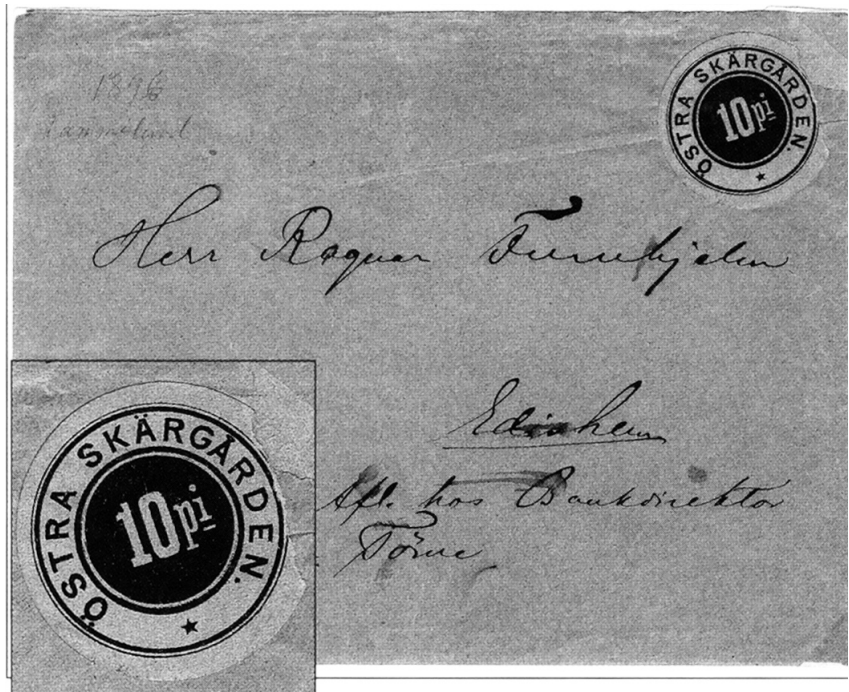 1896
ÖSTRA SKÄRGÅRDEN.
10 pi
Herr Ragnar Furuhjelm
Edisheim
Afl. hos Bankdirektör
Törne
ÖSTRA SKÄRGÅRDEN.
10 pi